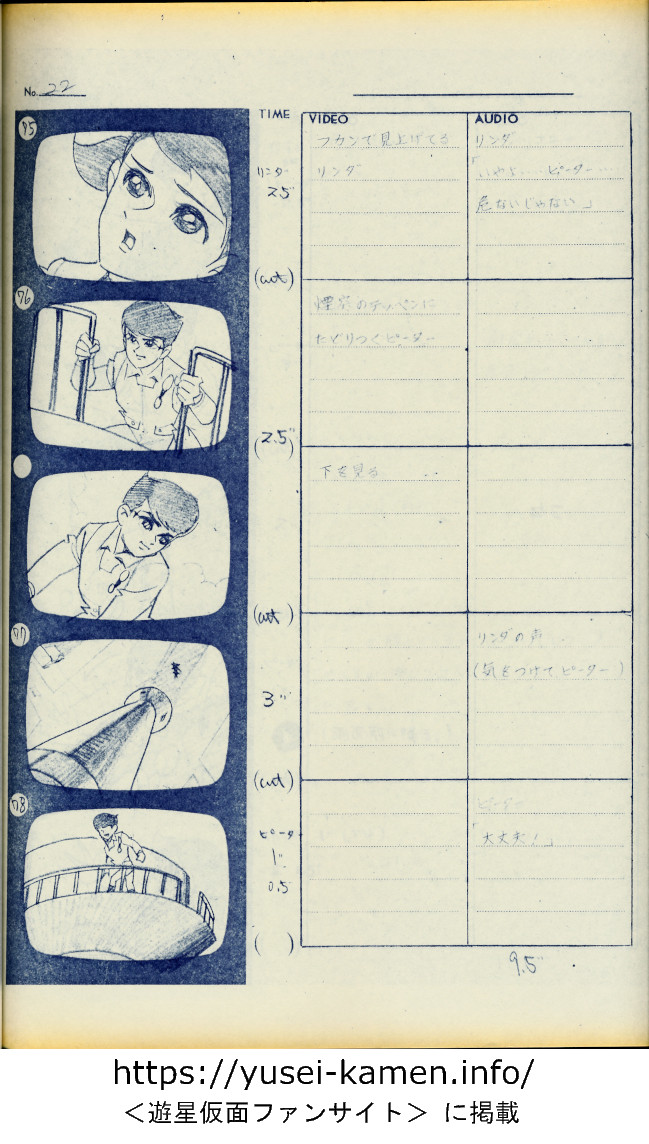 No. 22
TIME VIDEO AUDIO
75
リンダ
2.5
フカンで見上げてる
リンダ
リンダ
「いやよ…ピーター…
危ないじゃない」
(cut)
76
煙突のテッペンに
たどりつくピーター
(2.5")
下を見る
(cut)
77
3"
リンダの声
(気をつけてピーター)
(cut)
78
ピーター
1"
0.5
ピーター
「大丈夫!」
( )
9.5"
https://yusei-kamen.info/
＜遊星仮面ファンサイト＞ に掲載